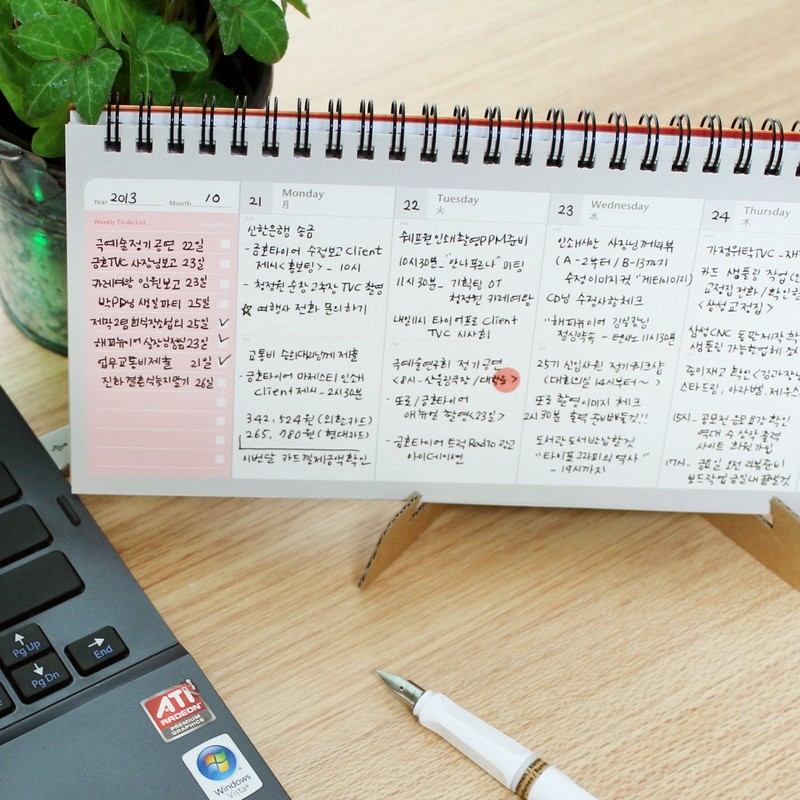 Year 2013 Month 10
Weekly To-do List
극예술정기공연 22일
금호TVC 사장님보고 23일
카레여왕 임원보고 23일
박PD님 생일파티 25일
해피뉴이어 실장님컨펌 23일
업무교통비제출 21일
26일
21 Monday
月
신한은행 송금
- 금호타이어 수정보고 Client
제시<홍보팀> - 10시
- 청정원 순창고추장 TVC 촬영
☆ 여행사 전화 문의하기
교통비 수희대리님께 제출
- 금호타이어 마제스티 인쇄
Client 제시 - 2시30분
342,524원(외환카드)
265,980원(현대카드)
이번달 카드결제금액확인
22 Tuesday
火
쉐프원인쇄촬영PPM준비
10시30분 - "안나푸르나" 미팅
11시30분 - 기획팀 OT
청정원 카레여왕
내일1시 타이어프로 Client
TVC 시사회
극예술연구회 정기공연
<8시 - 산울림극장/대학로>
- 또로/금호타이어
애뉴얼 촬영<23일>
- 금호타이어 트럭 Radio 광고
아이데이션
23 Wednesday
水
인쇄시안 사장님께리뷰
(A-2부터/B-13까지
수정이미지컷 "게티이미지)
CD님 수정사항체크
"해피뉴이어 김실장님
점심약속 - 11시30분
25기 신입사원 정기워크샵
(대회의실 14시부터~)
또로 촬영이미지 체크
2시30분 출력 준비해둘것!!
도서관 도서반납할것
"타이포그라피의 역사"
- 19시까지
24 Thursday
木
가정위탁TVC -
카드 샘플링 작업
교정집 전화/확인
<삼성교정집>
삼성CNC 동판제작
샘플링 가능한업체
종이재고 확인<김과장님
스타드림, 아라벨,
15시 - 공모전 응모요강 확인
역대 수상작 출력
사이트 회원가입
17시 - 금요일 오전 리뷰준비
보드작업 금일내 끝낼것
Pg Up
Pg Dn
End
ATI
RADEON
PREMIUM
GRAPHICS
Windows
Vista